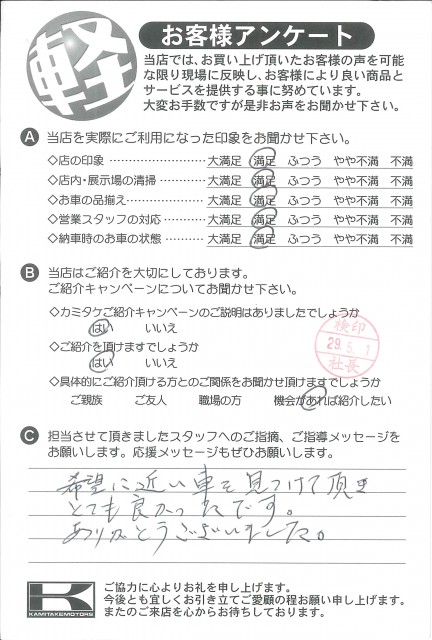 軽
お客様アンケート
当店では、お買い上げ頂いたお客様の声を可能
な限り現場に反映し、お客様により良い商品と
サービスを提供する事に努めています。
大変お手数ですが是非お声をお聞かせ下さい。
A 当店を実際にご利用になった印象をお聞かせ下さい。
◇店の印象 ………………… 大満足 満足 ふつう やや不満 不満
◇店内・展示場の清掃 ………… 大満足 満足 ふつう やや不満 不満
◇お車の品揃え ……………… 大満足 満足 ふつう やや不満 不満
◇営業スタッフの対応 ………… 大満足 満足 ふつう やや不満 不満
◇納車時のお車の状態 ………… 大満足 満足 ふつう やや不満 不満
B 当店はご紹介を大切にしております。
ご紹介キャンペーンについてお聞かせ下さい。
◇カミタケご紹介キャンペーンのご説明はありましたでしょうか
はい いいえ
◇ご紹介を頂けますでしょうか
はい いいえ
◇具体的にご紹介頂ける方とのご関係をお聞かせ頂けますでしょうか
ご親族 ご友人 職場の方 機会があれば紹介したい
検印
29.5.1
社長
C 担当させて頂きましたスタッフへのご指摘、ご指導メッセージを
お願いします。応援メッセージもぜひお願いします。
希望に近い車を見つけて頂き
とても良かったです。
ありがとうございました。
K
KAMITAKEMOTORS
ご協力に心よりお礼を申し上げます。
今後とも宜しくお引き立てご愛顧の程お願い申し上げます。
またのご来店を心からお待ちしております。